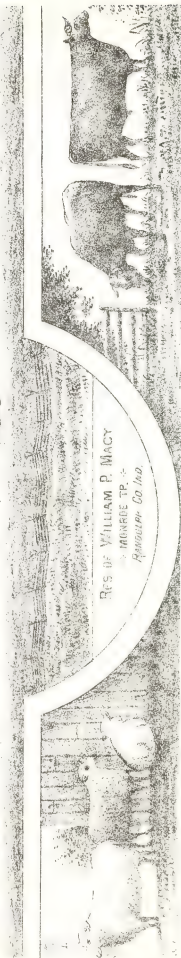 RES OF WILLIAM P. MACY
MONROE TP.
RANDOLPH CO. IND.